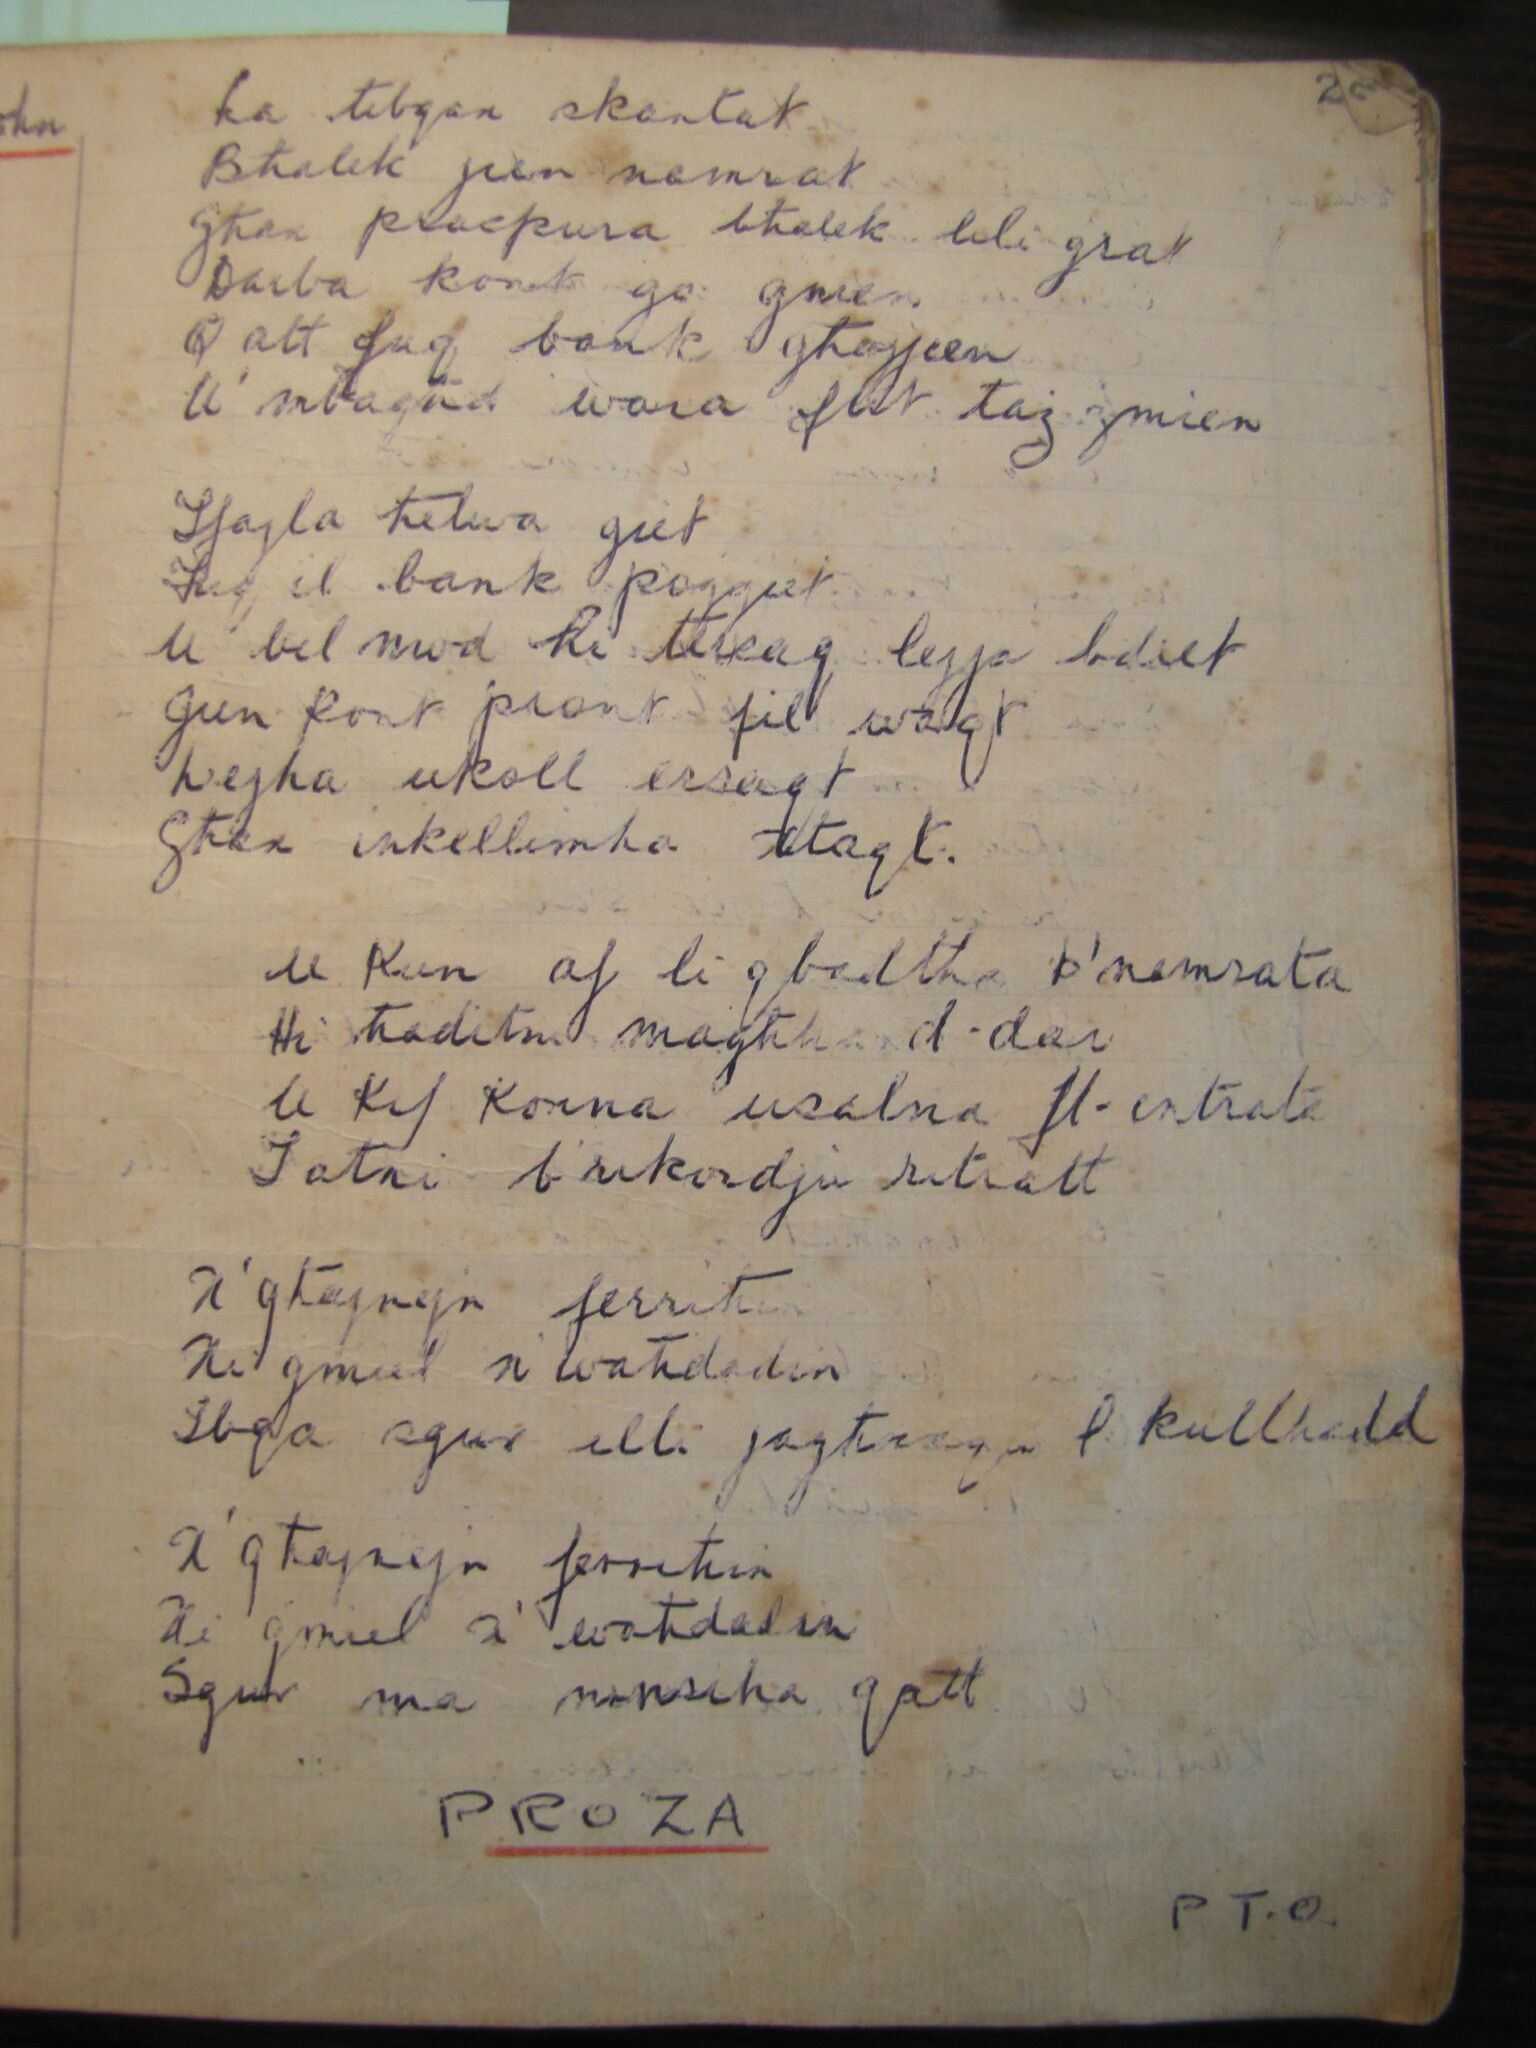 ohn
2
ħa tibqax skantat
Bħalek jien namrat
Għax propura bħalek lili grat
Darba kont ġo ġnien
Qatt fuq bank għajjien
U mbagħad wara ftit taż-żmien
Tfajla ħelwa ġiet
Fuq il bank poġġiet
U bil mod hi tersaq lejja bdiet
Jien kont pront fil waqt
Lejha ukoll ersaqt
Għax inkellimha xtaqt.
U Kun af li qbadtha b'namrata
Hi ħaditni magħha d-dar
U Kif Konna wsalna fl-entrata
Tatni b'rikordju ritratt
X'għajnejn ferriħin
Xi ġmiel x'waħdadin
Ibqa sgur illi jogħġogu l kullħadd
X'għajnejn ferriħin
Xi ġmiel x'waħdadin
Sgur ma ninsiha qatt
PROZA
P T.O.